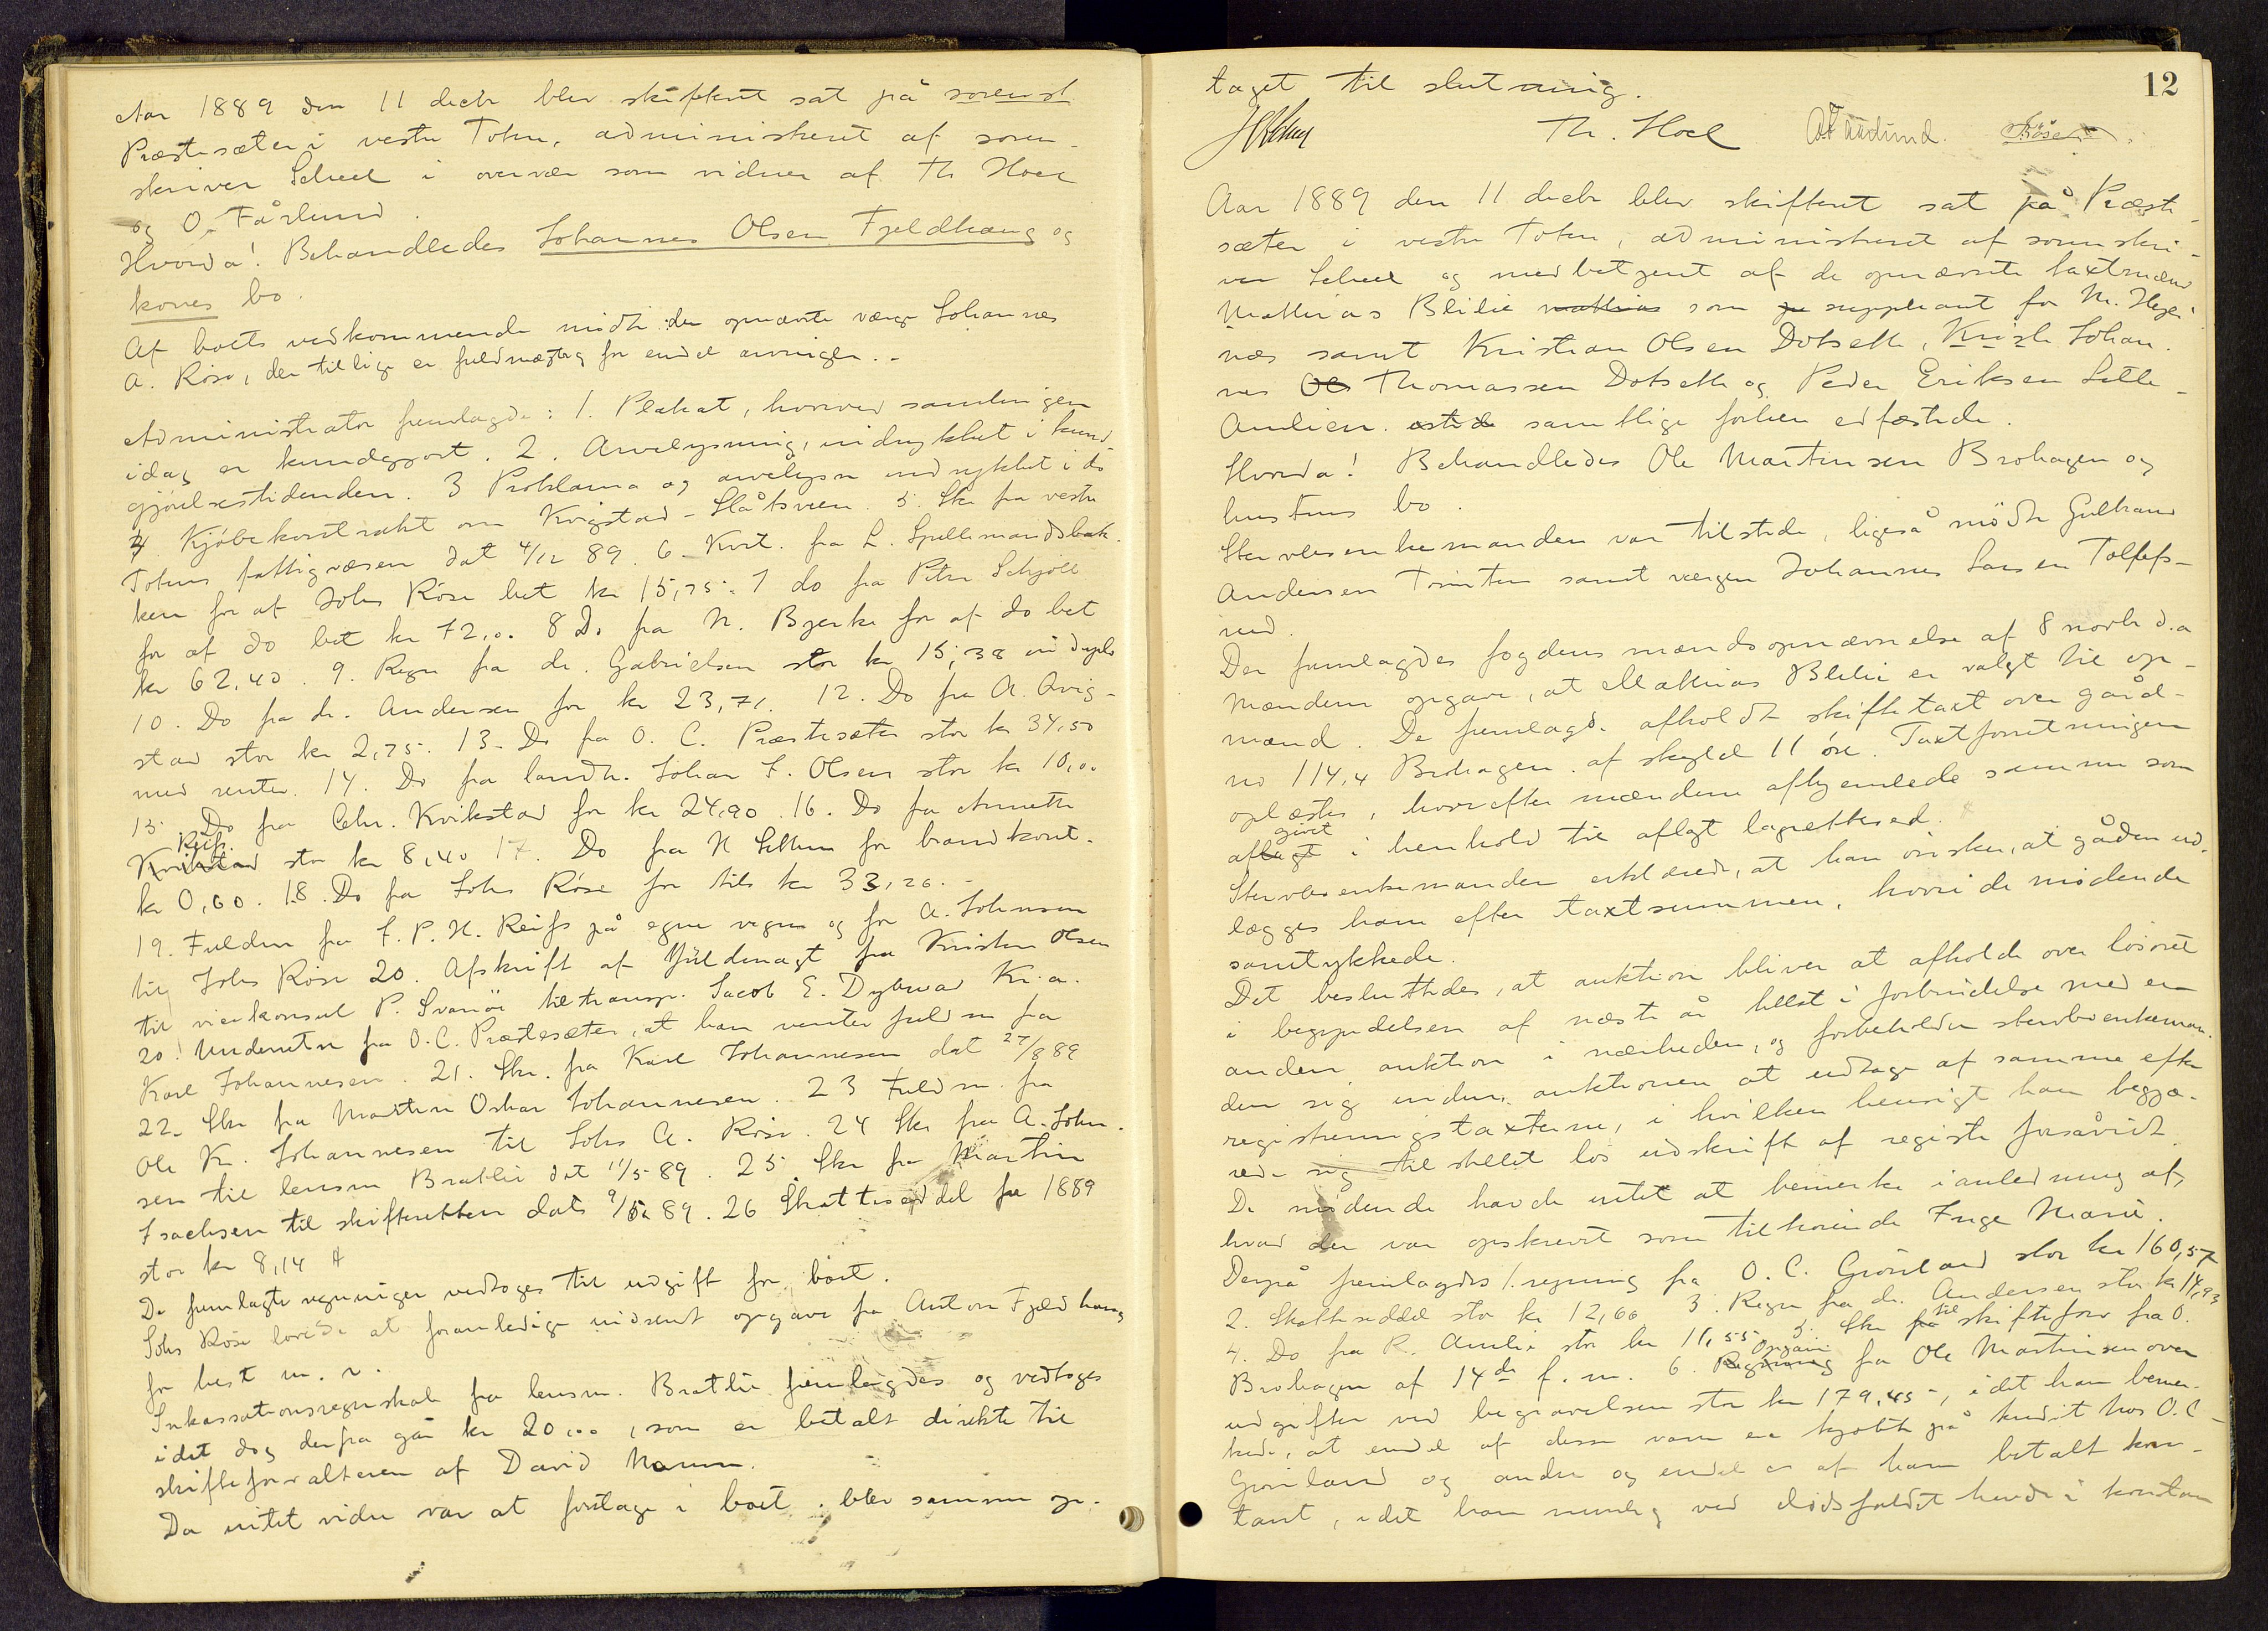 Aar 1889 den 11 decbr blev skifteret sat på sorenst
Præstesæter i vestre Toten, administreret af soren-
skriver Scheel i overvær som vidner af Th Hoel
og O. Fårlund.
Hvorda! Behandledes Johannes Olsen Fjeldhaug og
kones bo.
Af boets vedkommende mødte den opnævnte værge Johannes
A. Röse, der tillige er fuldmægtig for endel arvinger. -
Administrator fremlagde: 1. Plakat, hvorved samlingen
idag er kundgjort. 2. Arvelysning, indrykket i kund-
gjörelsestidenden. 3 Proklama og arvelysn indrykket i do
4 Kjöbekontrakt om Kvigstad-Slåtsveen. 5. Skr fra vestre
Totens fattigvæsen dat 4/12 89. 6. Kvit. fra L. Spillemandsbak-
ken for af Johs Röse bet kr 15,75. 7 do fra Peter Schjöll
for af do bet kr 72,00. 8 Do fra N. Bjerke for af do bet
kr 62,40. 9. Regn fra dr. Gabrielsen stor kr 15,38 in duplo
10. Do fra dr. Andersen for kr 23,71. 12. Do fra A. Qvig-
stad stor kr 2,75. 13. Do fra O. C. Præstesæter stor kr 34,50
med renter. 14. Do fra landh. Johan F. Olsen stor kr 10,00
15 Do fra Chr. Kvikstad for kr 24,90. 16. Do fra Annette
Reifs.
Kvikstad stor kr 8,40 17. Do fra N Sillum for brandkont.
kr 0,60. 18. Do fra Johs Röse for tils kr 33,26. -
19. Fuldm fra F. P. H. Reifs på egne vegne og for A. Johnsen
til Johs Röse 20. Afskrift af fuldmagt fra Kristen Olsen
til vicekonsul P. Svanöe til transp. Jacob E. Dybwad Kr.a.
20! Underretn fra O. C. Præstesæter, at han venter fuldm fra
Karl Johannesen. 21. Skr. fra Karl Johannesen dat 27/8 89
22. Skr fra Martin Oskar Johannesen. 23 Fuldm. fra
Ole Kr. Johannesen til Johs A. Röse. 24 Skr fra A. John-
sen til lensm Bratlie dat 11/5 89. 25 Skr fra Martin
Isachsen til skifteretten dat 9/12 89. 26 Skatteseddel for 1889
stor kr 8,14
De fremlagte regninger vedtoges til udgift for boet.
Johs Röse lovede at foranledige indsendt opgave fra Anton Fjeldhaug
for hest m. v.
Inkassationsregnskab fra lensm. Bratlie fremlagdes og vedtoges
idet dog derfra går kr 20,00, som er betalt direkte til
skifteforvalteren af David Narum.
Da intet videre var at foretage i boet, blev samme op-
12
taget til slutning.
Th. Hoel O. Faarlund. Röse
Aar 1889 den 11 decbr blev skifteret sat på Præste-
sæter i vestre Toten, administreret af sorenskri-
ver Scheel og medbetjent af de opnævnte taxtmænd
Mathias Blilie mathias som suppleant for M. Hege-
næs samt Kristian Olsen Dotseth, Krist Johan-
nes Ol Thomassen Dotseth og Peder Eriksen Lille-
Amlien. samtlige forhen edfæstede.
Hvorda! Behandledes Ole Martinsen Brohagen og
hustrus bo.
Stervboenkemanden var tilstede, ligeså mödte Gulbrand
Andersen Trintrn samt værgen Johannes Larsen Tollefs-
rud.
Der fremlagdes fogdens mandsopnævnelse af 8 novbr d.a
Mændene opgave, at Mathias Blilie er valgt til op-
mand. De fremlagde afholdt skiftetaxt over gård-
no 114,4 Brohagen af skyld 11 öre. Taxtforretningen
oplæstes, hvorefter mændene afhjemlede samme som
givet
aflagt i henhold til aflagt lagrettesed.
Stervboenkemanden erklærede, at han önsker, at gården ud-
lægges ham efter taxtsummen, hvori de mödende
samtykkede.
Det besluttedes, at auktion bliver at afholde over lösöret
i begyndelsen af næste år helst i forbindelse med en
anden auktion i nærheden, og forbeholder stervboenkeman-
den sig inden auktionen at udtage af samme efter
registreringstaxterne, i hvilken henseigt han begjæ-
rede sig tilstillet lös udskrift af registr forsåvidt.
De mödende havde intet at bemerke i anledning af,
hvad der var opskrevet som tilhörende Inge Marie.
Derpå fremlagdes 1. regning fra O. C. Grönland stor kr 160,57
2. Skatteseddel stor kr 12,66 3. Regn fra dr. Andersen stor kr 14,93
4. Do fra R. Amlie stor kr 11,55 5. Skr fra til skifteforv fra O.
Brohagen af 14de f. m. 6. Regning Opgave fra Ole Martinsen over
udgifter ved begravelsen stor kr 179,45, idet han bemer-
kede, at endel af disse varer er kjöbt på kredit hos O. C.
Grönland og andre og endel er af ham betalt kon-
tant, idet han nemlig ved dödsfaldet havde i kontan